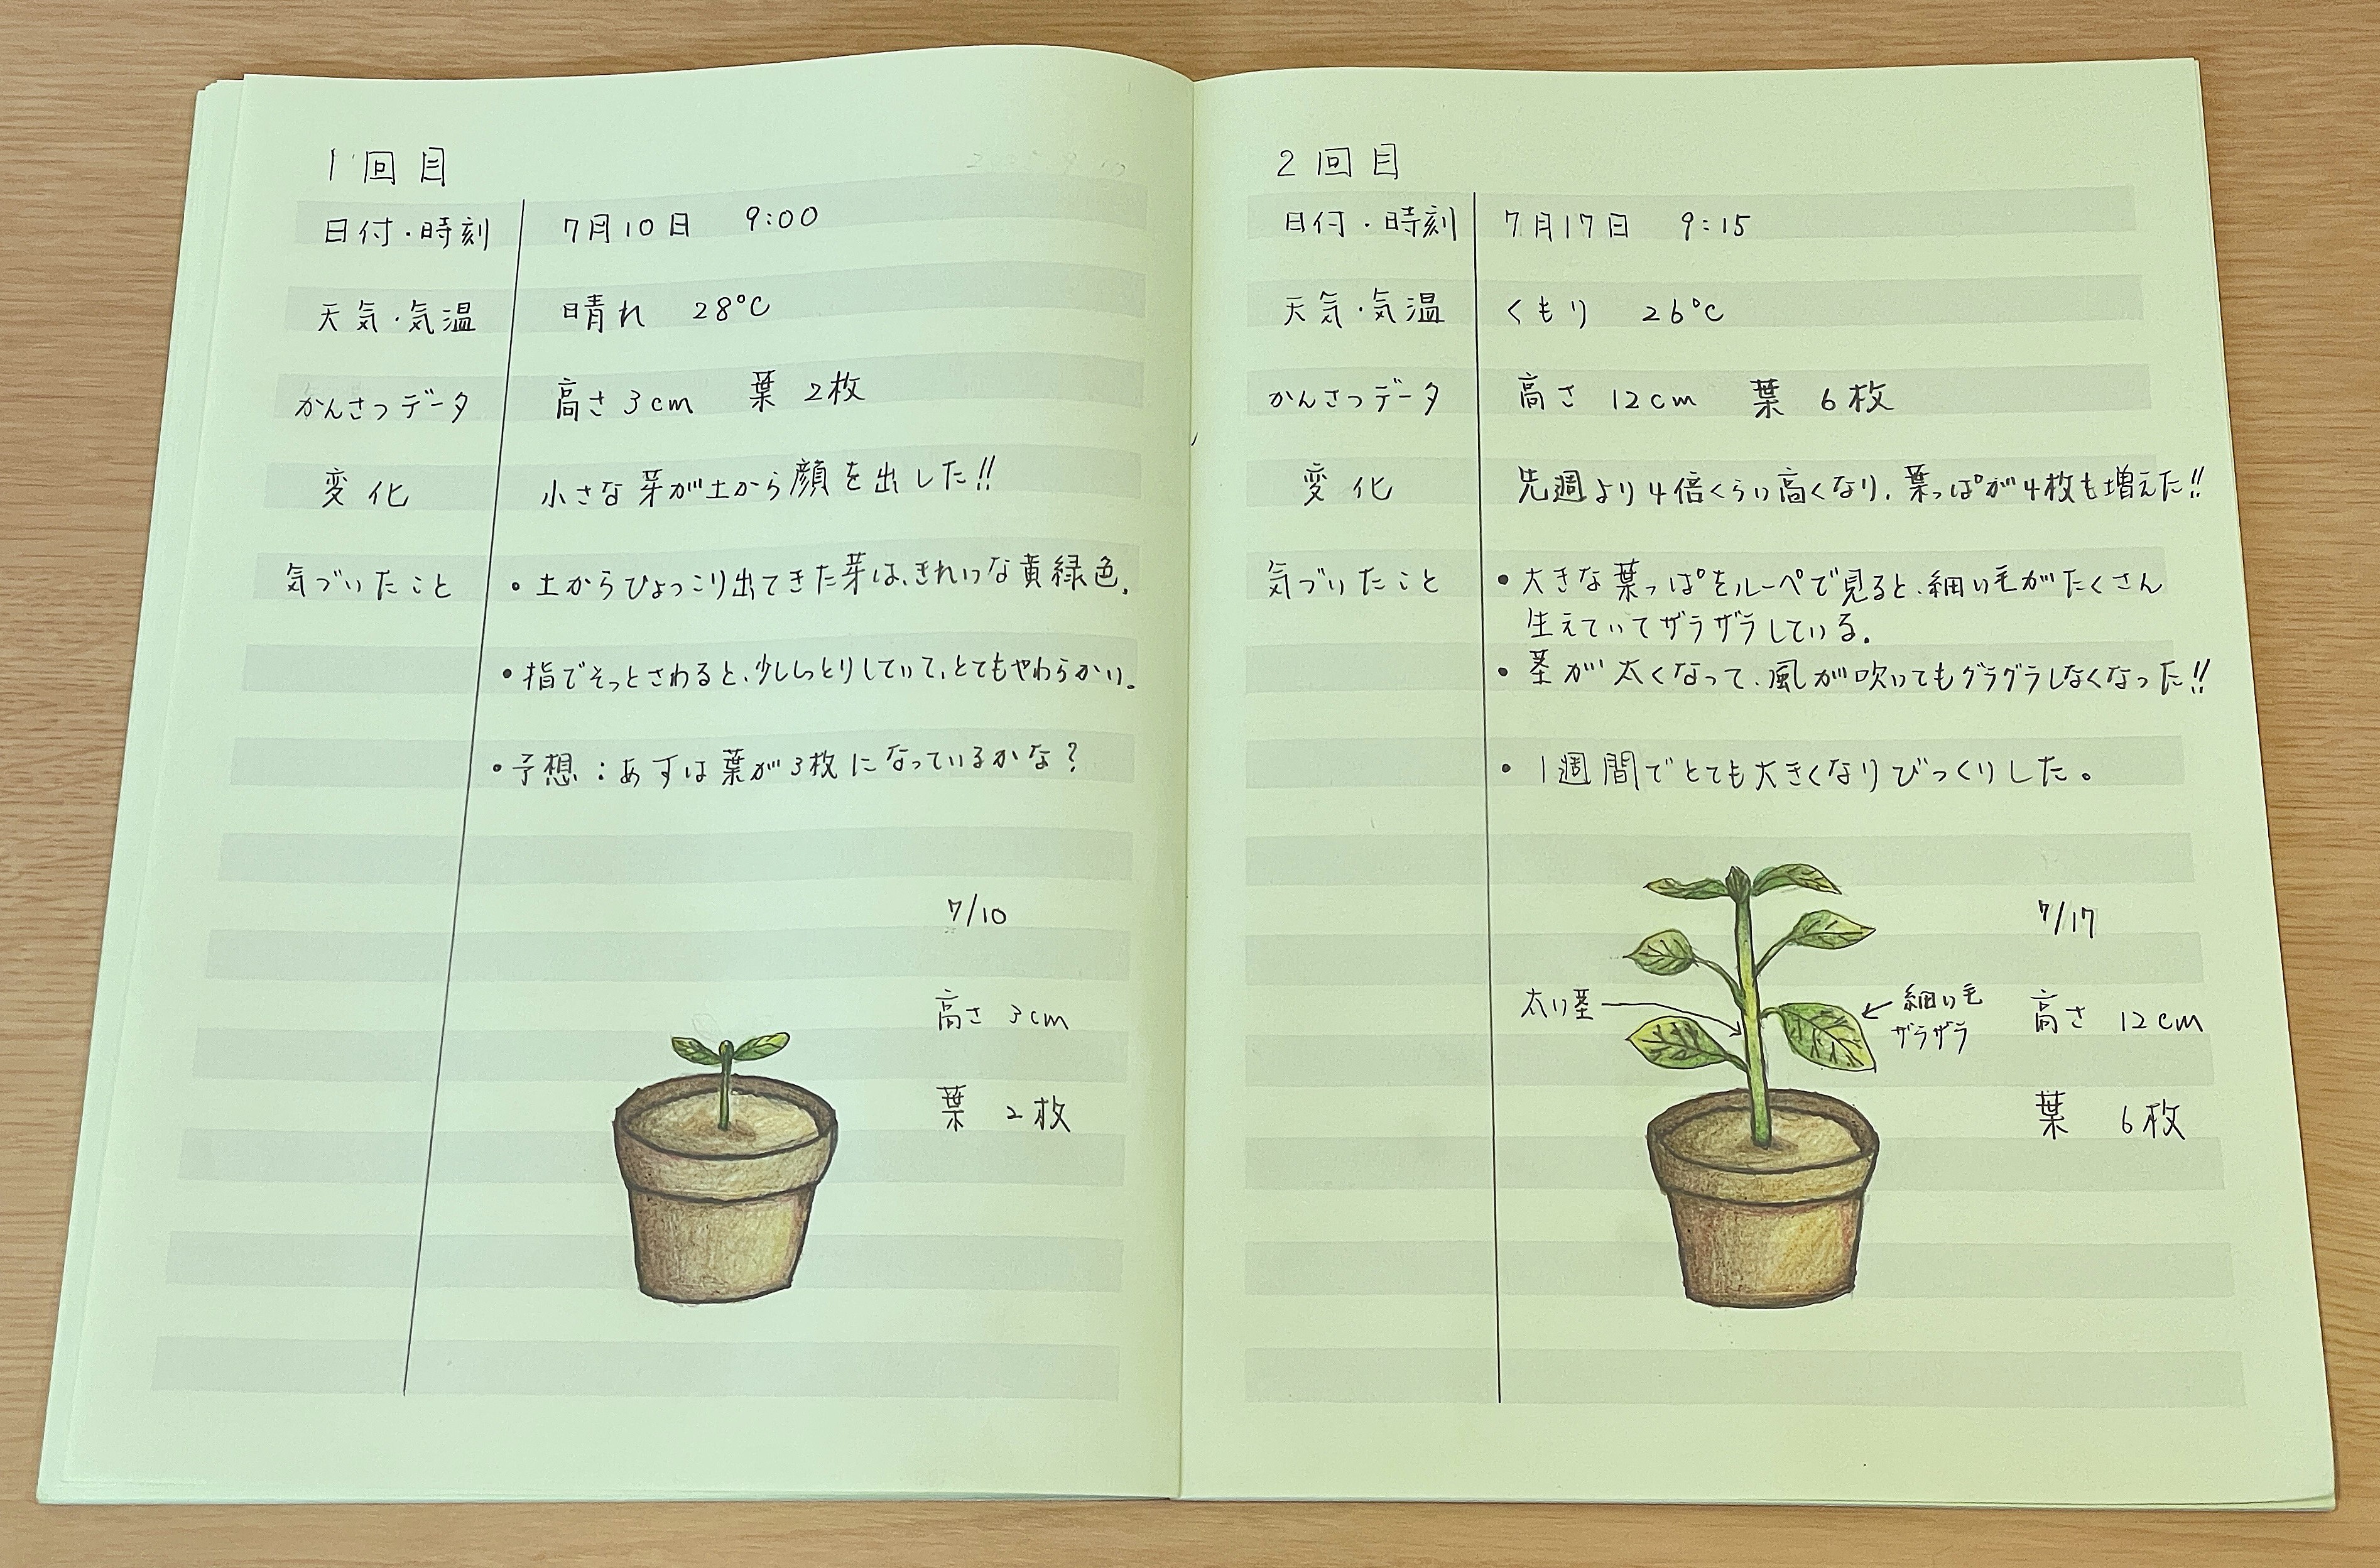 1回目
日付・時刻 7月10日 9:00
天気・気温 晴れ 28℃
かんさつデータ 高さ 3cm 葉 2枚
変化 小さな芽が土から顔を出した!!
気づいたこと ・土からひょっこり出てきた芽は、きれいな黄緑色。
・指でそっとさわると、少ししっとりしていて、とてもやわらかい。
・予想：あすは葉が3枚になっているかな？
7/10
高さ 3cm
葉 2枚
2回目
日付・時刻 7月17日 9:15
天気・気温 くもり 26℃
かんさつデータ 高さ 12cm 葉 6枚
変化 先週より4倍くらい高くなり、葉っぱが4枚も増えた!!
気づいたこと ・大きな葉っぱをルーペで見ると、細い毛がたくさん
生えていてザラザラしている。
・茎が太くなって、風が吹いてもグラグラしなくなった!!
・1週間でとても大きくなりびっくりした。
7/17
太い茎
細い毛
ザラザラ
高さ 12cm
葉 6枚